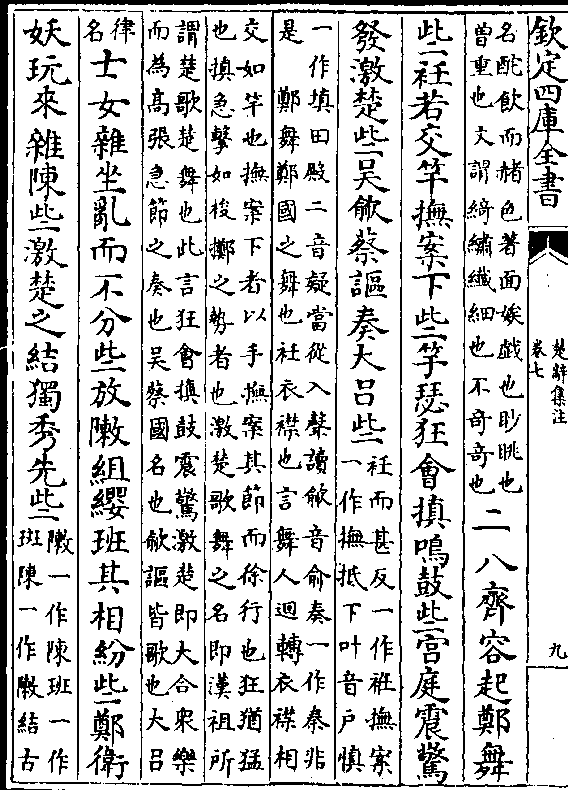 欽定四庫全書
楚辭集注
卷七
九
名酡飲而赭色著面娭戲也眇眺也
曽重也文謂綺繡纖細也不竒竒也
二八齊容起鄭舞
些衽若交竿撫案下些竽瑟狂會搷鳴鼓些宫庭震驚
發激楚些吳歈蔡謳奏大吕些
衽而甚反一作袵撫案
一作撫抵下叶音户慎
一作填田殿二音疑當從入聲讀歈音俞奏一作秦非
是 鄭舞鄭國之舞也衽衣襟也言舞人迴轉衣襟相
交如竿也撫案下者以手撫案其節而徐行也狂猶猛
也搷急擊如梭擲之勢者也激楚歌舞之名即漢祖所
謂楚歌楚舞也此言狂會搷鼓震驚激楚即大合衆樂
而為髙張急節之奏也吳蔡國名也歈謳皆歌也大吕
律
名
士女雜坐亂而不分些放敶組纓班其相紛些鄭衛
妖玩來雜陳些激楚之結獨秀先些
敶一作陳班一作
斑陳一作敶結古